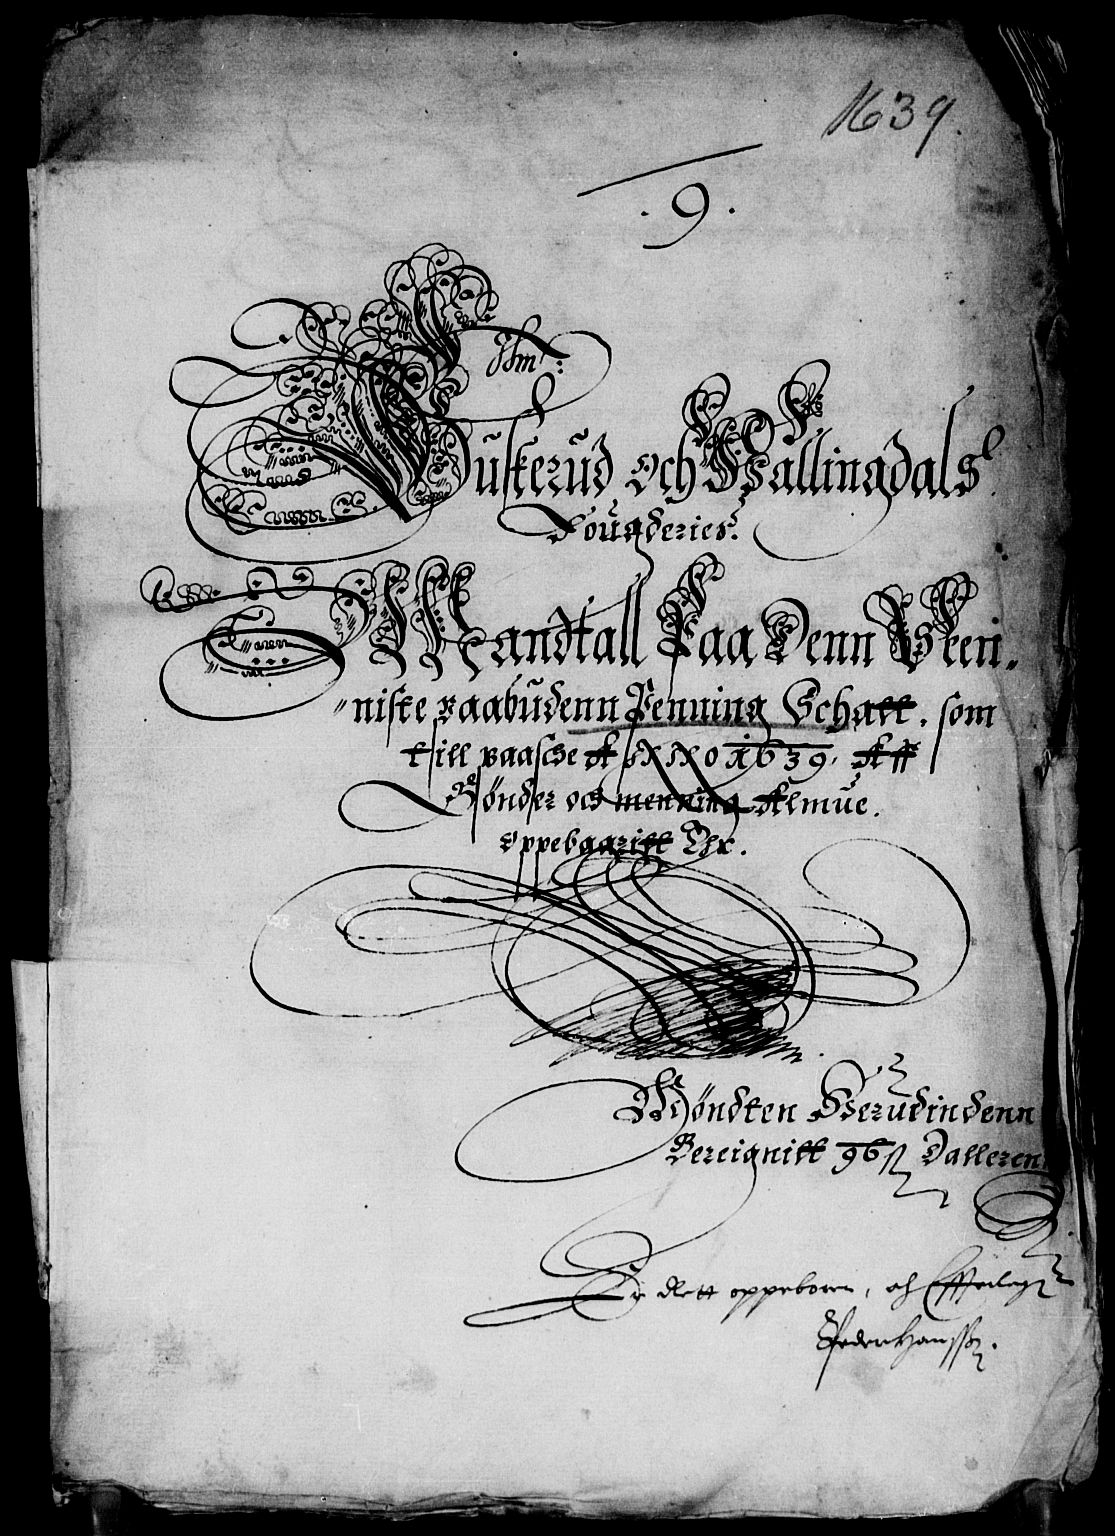 1639.
. 9 .
Buskerud och Hallingdals
Fougderies.
Mandtall Paa Denn Veen„
„niste paabudenn Penning Schatt. som
till paasche A nno 1639. Aff
Bønder och menning Almue.
oppebaaritt Er.
Møndten Herudindenn
Bereignitt 96 ß Dallerenn
Er Rett oppeboren, och
Peder Hanssen.